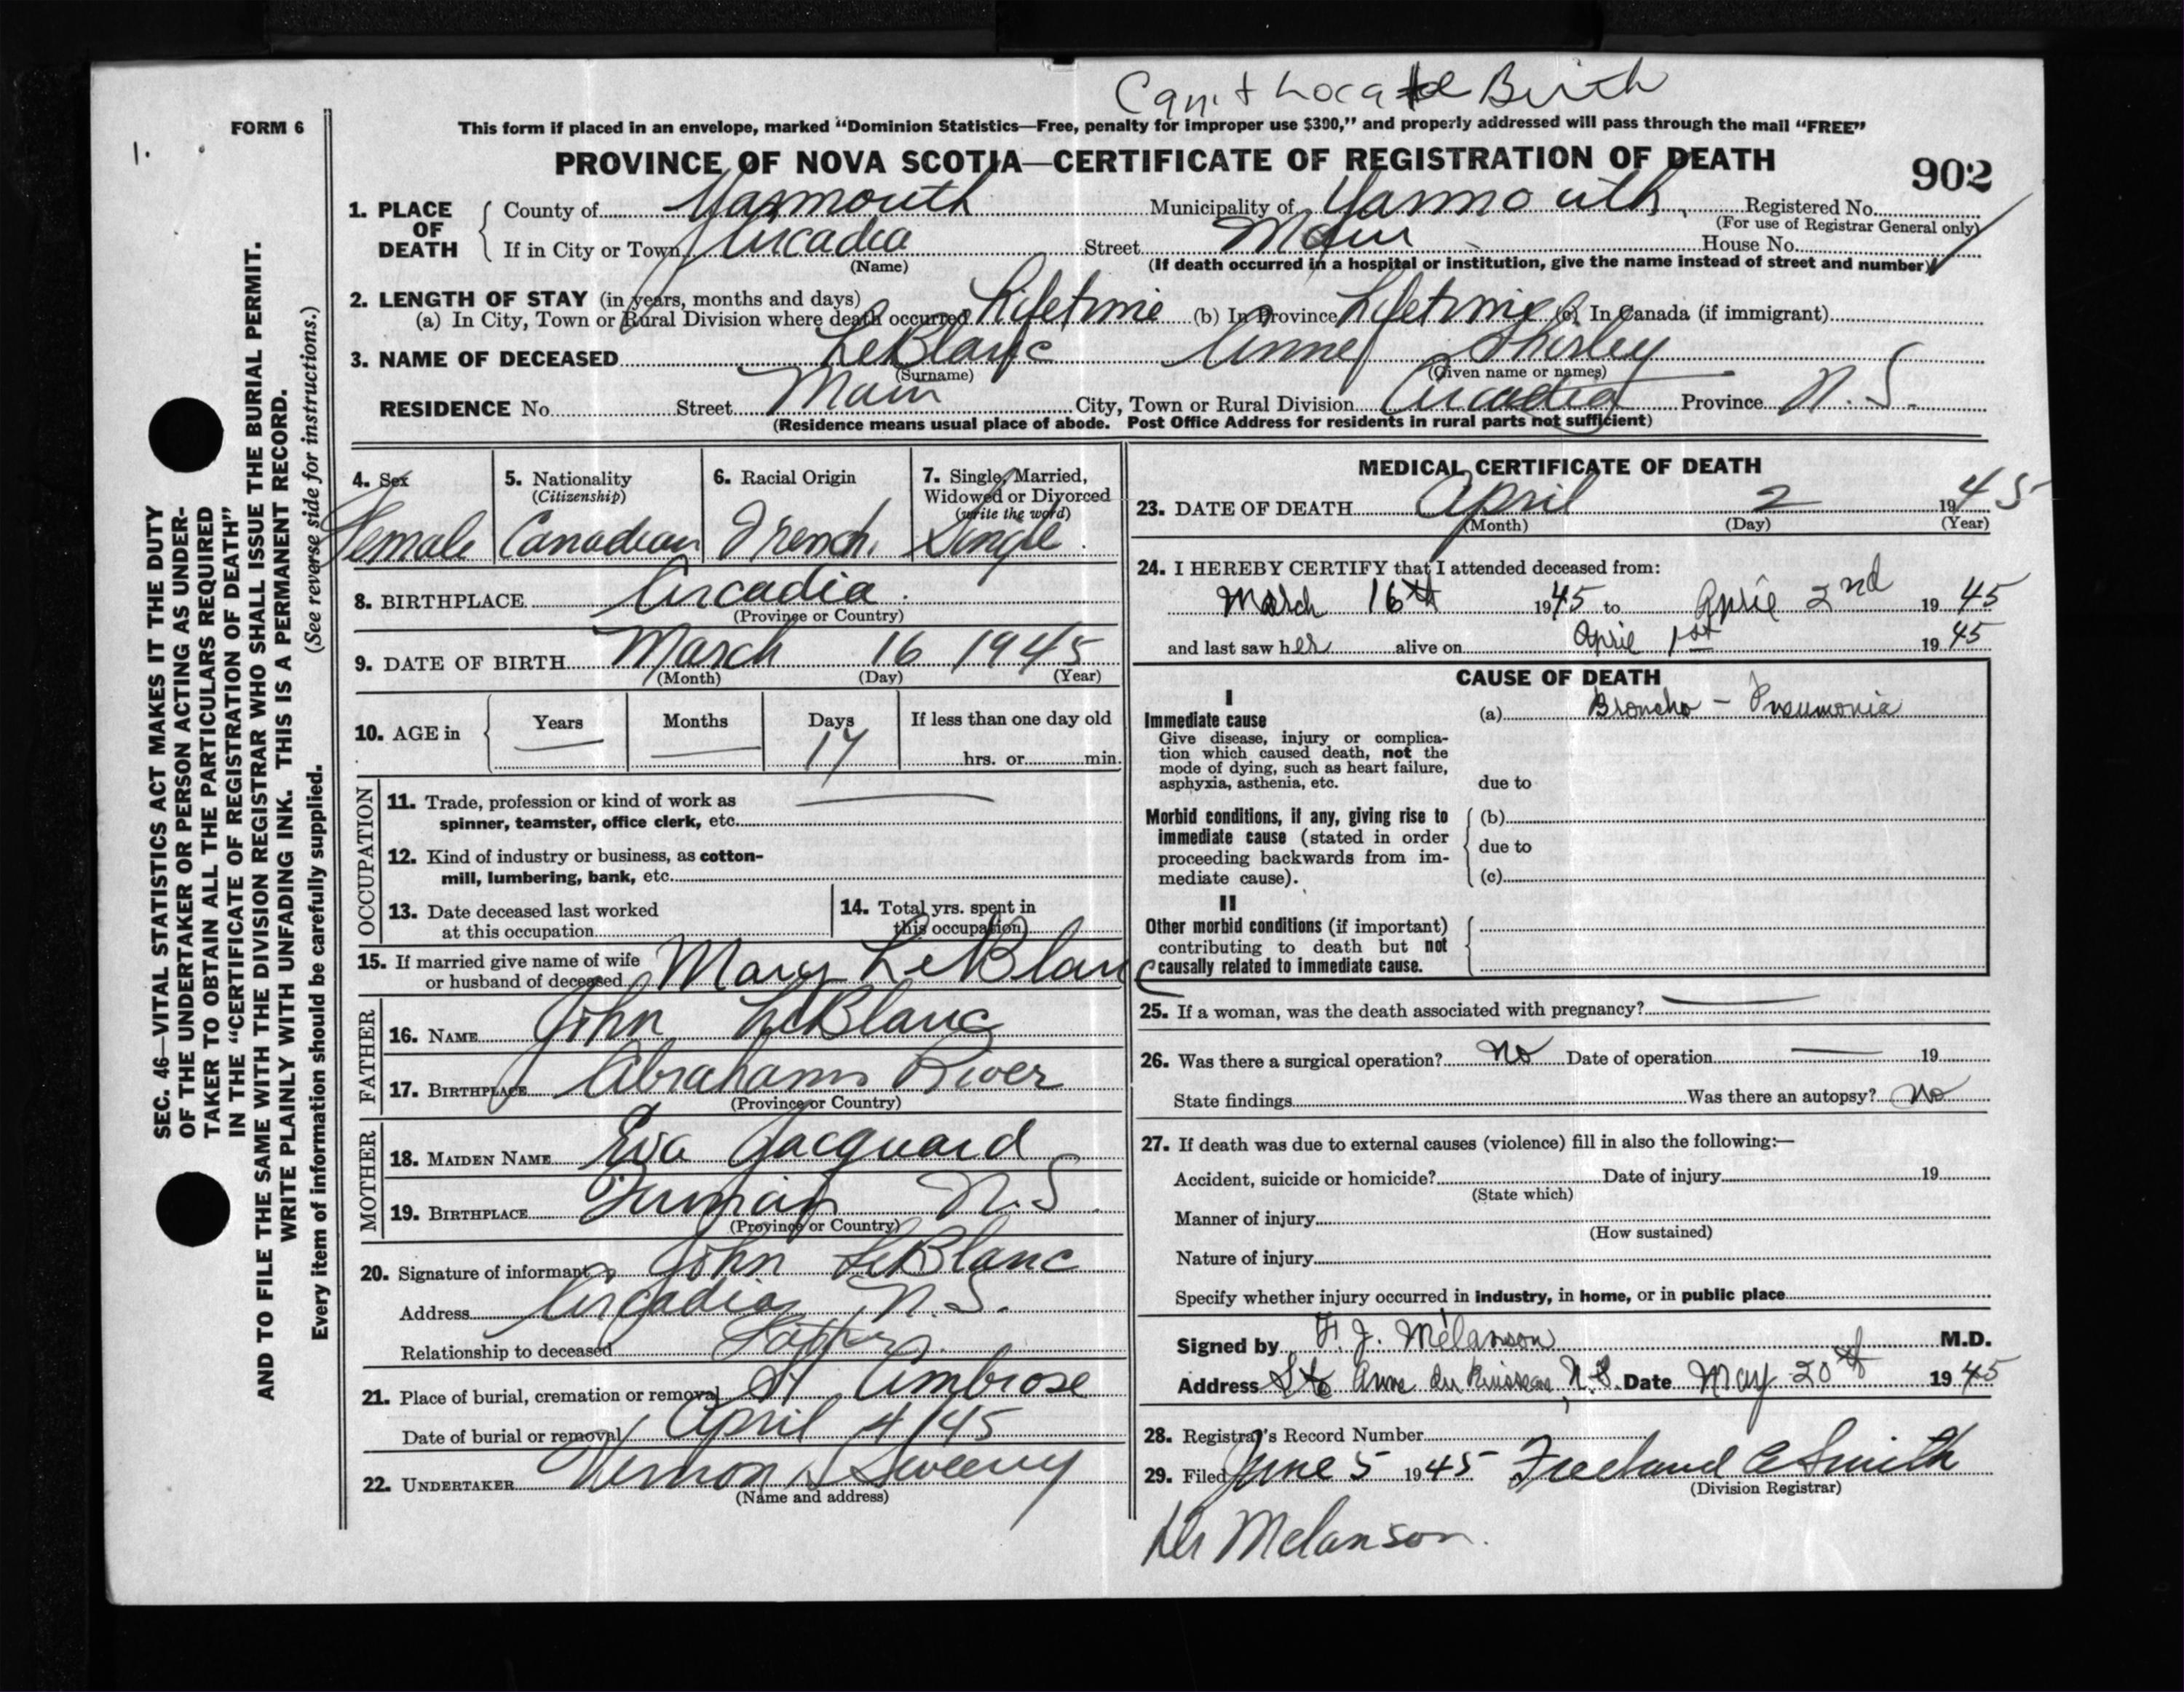 Can't Locate Birth
FORM 6
1.
This form if placed in an envelope, marked "Dominion Statistics—Free, penalty for improper use $300," and properly addressed will pass through the mail "FREE"
PROVINCE OF NOVA SCOTIA—CERTIFICATE OF REGISTRATION OF DEATH
902
1. PLACE OF DEATH
County of Yarmouth Municipality of Yarmouth Registered No.
(For use of Registrar General only)
If in City or Town Arcadia Street Main House No.
(Name) (If death occurred in a hospital or institution, give the name instead of street and number)
2. LENGTH OF STAY (in years, months and days)
(a) In City, Town or Rural Division where death occurred Lifetime (b) In Province Lifetime (c) In Canada (if immigrant)
3. NAME OF DECEASED LeBlanc Anne Shirley
(Surname) (Given name or names)
RESIDENCE No. Street Main City, Town or Rural Division Arcadia Province N.S.
(Residence means usual place of abode. Post Office Address for residents in rural parts not sufficient)
4. Sex Female
5. Nationality (Citizenship) Canadian
6. Racial Origin French
7. Single, Married, Widowed or Divorced (write the word) Single
8. BIRTHPLACE Arcadia
(Province or Country)
9. DATE OF BIRTH March 16 1945
(Month) (Day) (Year)
10. AGE in Years — Months — Days 17 If less than one day old
hrs. or min.
OCCUPATION
11. Trade, profession or kind of work as
spinner, teamster, office clerk, etc.
12. Kind of industry or business, as cotton-
mill, lumbering, bank, etc.
13. Date deceased last worked
at this occupation
14. Total yrs. spent in
this occupation
15. If married give name of wife
or husband of deceased Mary LeBlanc
FATHER
16. NAME John LeBlanc
17. BIRTHPLACE Abrahams River
(Province or Country)
MOTHER
18. MAIDEN NAME Eva Jacquard
19. BIRTHPLACE N.S.
(Province or Country)
20. Signature of informant John LeBlanc
Address Arcadia, N.S.
Relationship to deceased Father
21. Place of burial, cremation or removal St Ambrose
Date of burial or removal April 4/45
22. UNDERTAKER Vernon Sweeny
(Name and address)
MEDICAL CERTIFICATE OF DEATH
23. DATE OF DEATH April 2 1945
(Month) (Day) (Year)
24. I HEREBY CERTIFY that I attended deceased from:
March 16th 1945 to April 2nd 1945
and last saw her alive on April 1st 1945
CAUSE OF DEATH
I
Immediate cause (a) Broncho - Pneumonia
Give disease, injury or complica-
tion which caused death, not the
mode of dying, such as heart failure,
asphyxia, asthenia, etc. due to
Morbid conditions, if any, giving rise to (b)
immediate cause (stated in order due to
proceeding backwards from im-
mediate cause). (c)
II
Other morbid conditions (if important)
contributing to death but not
causally related to immediate cause.
25. If a woman, was the death associated with pregnancy? —
26. Was there a surgical operation? No Date of operation — 19
State findings Was there an autopsy? No
27. If death was due to external causes (violence) fill in also the following:—
Accident, suicide or homicide? Date of injury 19
(State which)
Manner of injury
(How sustained)
Nature of injury
Specify whether injury occurred in industry, in home, or in public place
Signed by F. J. Melanson M.D.
Address Ste Anne du Ruisseau, N.S. Date May 20th 1945
28. Registrar's Record Number
29. Filed June 5 1945 Freeland E Smith
(Division Registrar)
Dr Melanson.
SEC. 46—VITAL STATISTICS ACT MAKES IT THE DUTY
OF THE UNDERTAKER OR PERSON ACTING AS UNDER-
TAKER TO OBTAIN ALL THE PARTICULARS REQUIRED
IN THE "CERTIFICATE OF REGISTRATION OF DEATH"
AND TO FILE THE SAME WITH THE DIVISION REGISTRAR WHO SHALL ISSUE THE BURIAL PERMIT.
WRITE PLAINLY WITH UNFADING INK. THIS IS A PERMANENT RECORD.
Every item of information should be carefully supplied. (See reverse side for instructions.)